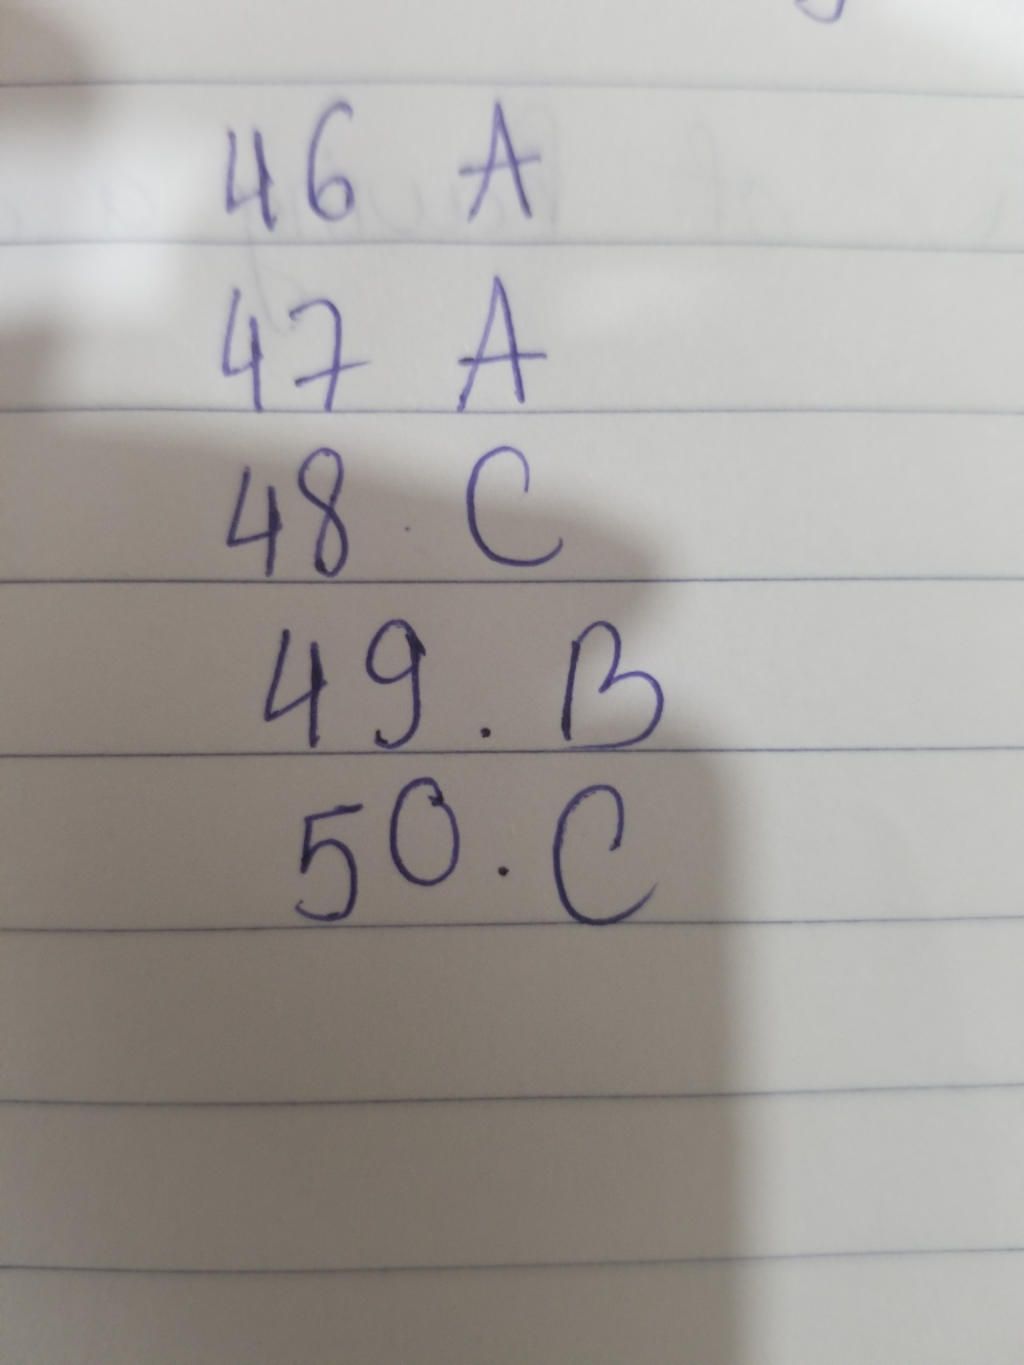 46 A
47 A
48. C
49. B
50. C